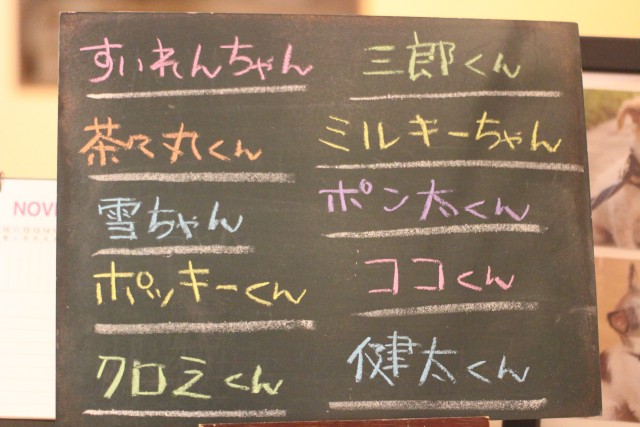 すいれんちゃん
茶々丸くん
雪ちゃん
ポッキーくん
クロミくん
三郎くん
ミルキーちゃん
ポン太くん
ココくん
健太くん